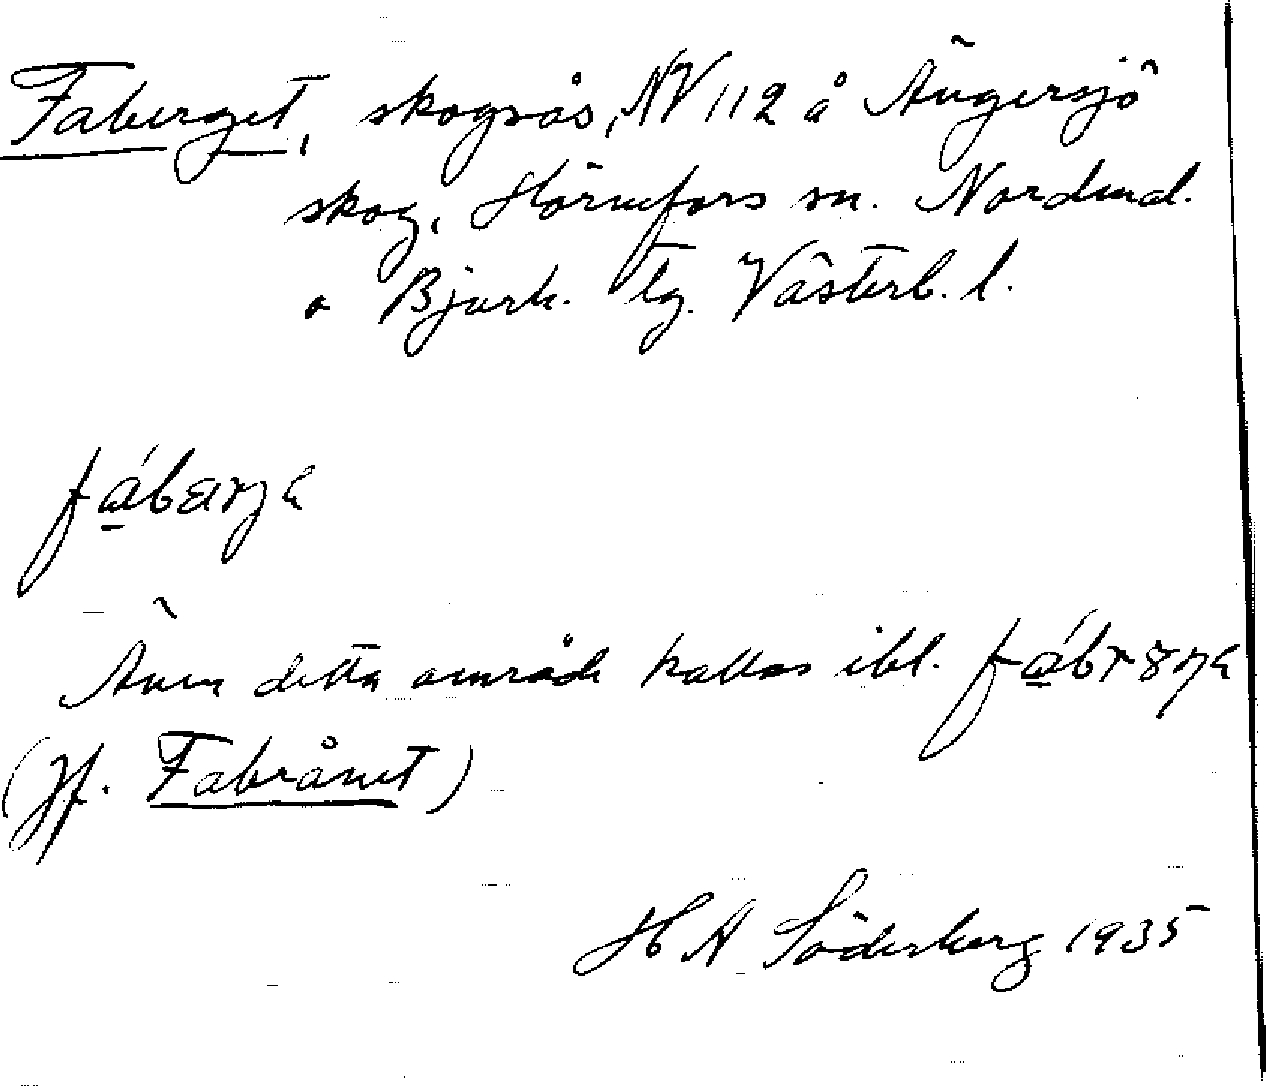 Faberget, skogsås, NV 112 å Ängersjö
skog, Hörnefors sn. Nordmal.
o Bjurh. tg. Västerb. l.
fábærjɛ
Även detta område kallas ibl.
(Jf. Fabrånet)
H A Söderberg 1935